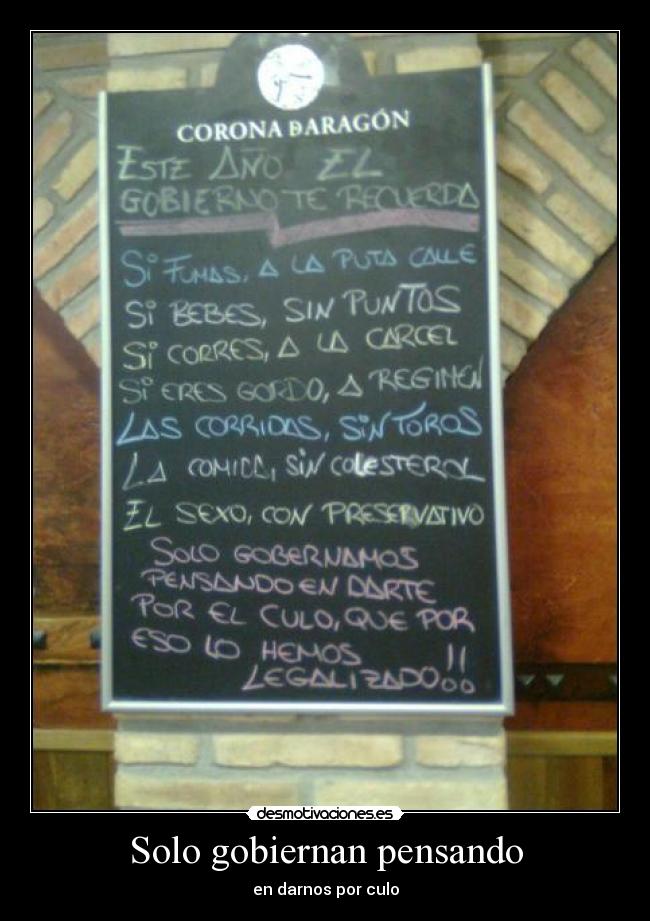 CORONA DARAGÓN
ESTE AÑO EL
GOBIERNO TE RECUERDA
Si FUMAS, A LA PUTA CALLE
Si BEBES, SIN PUNTOS
Si CORRES, A LA CARCEL
Si ERES GORDO, A REGIMEN
LAS CORRIDAS, SiN TOROS
LA COMIDA, SiN COLESTEROL
EL SEXO, CON PRESERVATIVO
SOLO GOBERNAMOS
PENSANDO EN DARTE
POR EL CULO, QUE POR
ESO LO HEMOS
LEGALIZADO!!
desmotivaciones.es
Solo gobiernan pensando
en darnos por culo